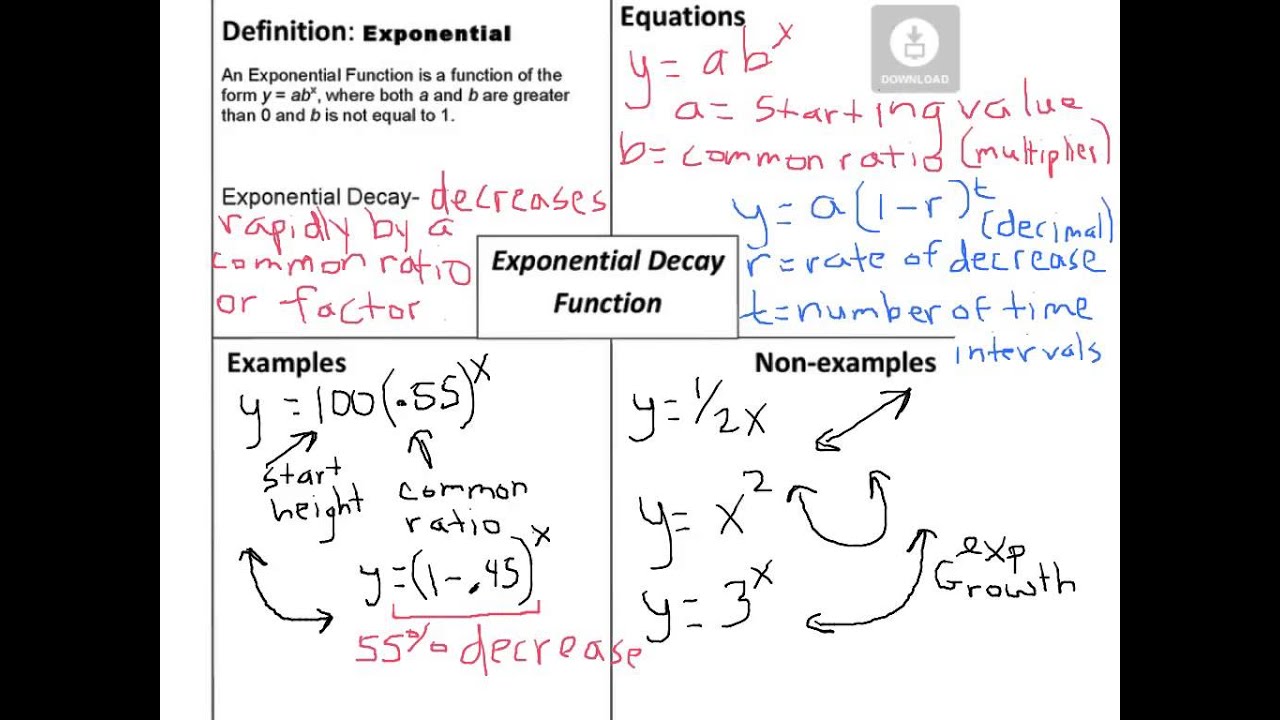 Definition: Exponential
An Exponential Function is a function of the
form y = abˣ, where both a and b are greater
than 0 and b is not equal to 1.
Exponential Decay- decreases
rapidly by a
common ratio
or factor
Equations
DOWNLOAD
y = abˣ
a = starting value
b = common ratio (multiplier)
y = a(1-r)ᵗ
(decimal)
r = rate of decrease
t = number of time
intervals
Exponential Decay
Function
Examples
y = 100(.55)ˣ
start
height
common
ratio
y = (1-.45)ˣ
55% decrease
Non-examples
y = 1/2x
y = x²
y = 3ˣ
exp
Growth